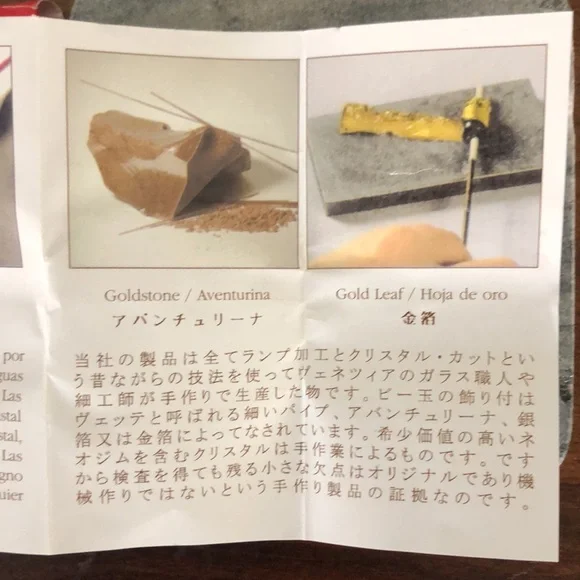 Goldstone / Aventurina
アバンチュリーナ
Gold Leaf / Hoja de oro
金箔
por
guas
Las
stal
stal,
Las
gno
uier
当社の製品は全てランプ加工とクリスタル・カットとい
う昔ながらの技法を使ってヴェネツィアのガラス職人や
細工師が手作りで生産した物です。ビー玉の飾り付は
ヴェッテと呼ばれる細いパイプ、アバンチュリーナ、銀
箔又は金箔によってなされています。希少価値の高いネ
オジムを含むクリスタルは手作業によるものです。です
から検査を得ても残る小さな欠点はオリジナルであり機
械作りではないという手作り製品の証拠なのです。